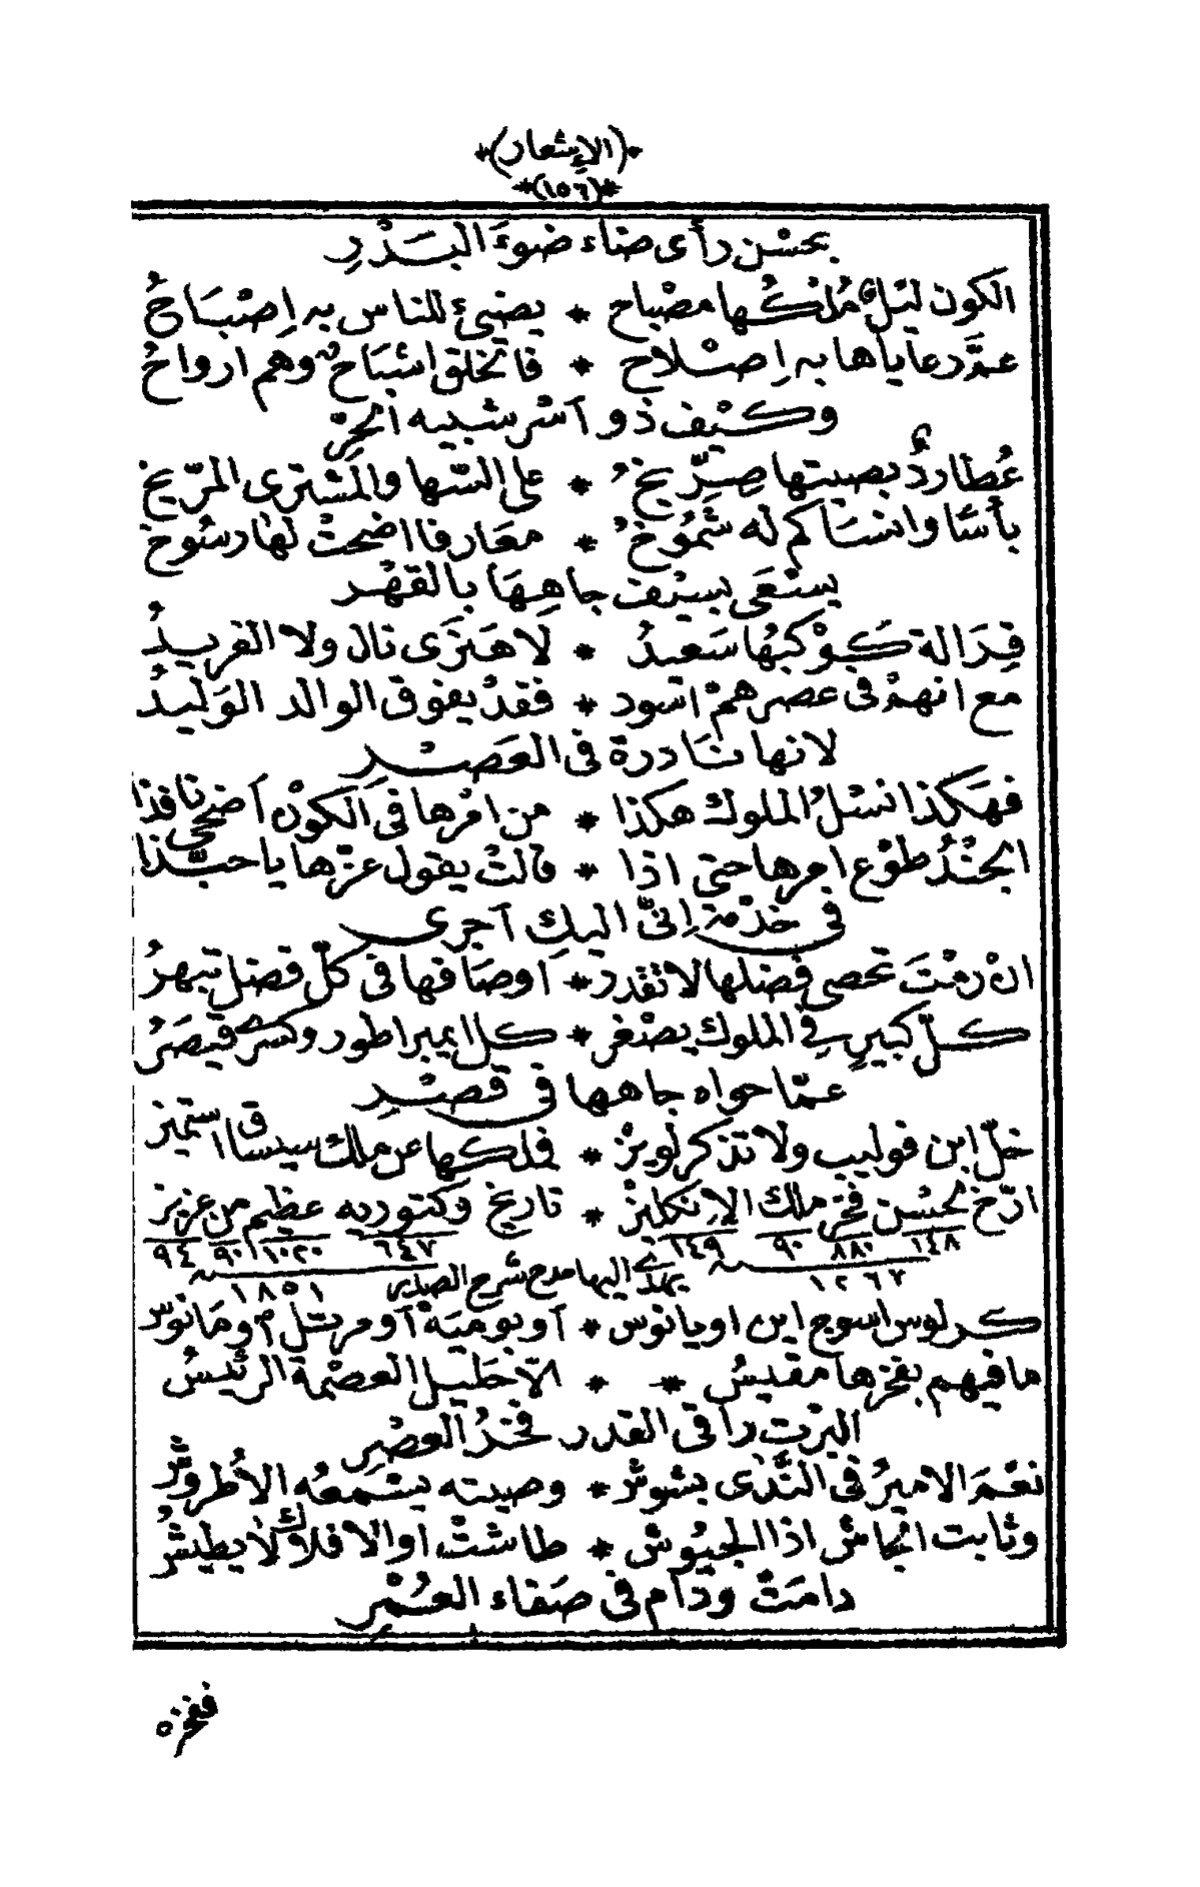 *(الإشعار)*
*(١٥٦)*
بحسْن رأى ضاء ضوءَ البَدْرِ
الكون ليْلٌ مُلْكُها مصْباح * يضئ للناس به اِصْبَاحُ
عمَّ رعاياها به اِصْلاح * فاتخلق اشْبَاحٌ وهم ارواحُ
وكيْف ذو آسْر شبيه الحرّ
عُطاردٌ بصيتها صِرِّيخُ * على السّها والمشْترى المرّيخ
بأسًا وانسًا كم له شُمُوُخُ * معَارفا اضحتْ لها رسُوخ
يسْعَى بسيْف جاهِهَا بالقهْر
قِرَالة كوْكبُها سَعيدُ * لا هنرَى نال ولا الفريدُ
مع انهمْ فى عصرهمْ اسود * فقدْ يفوق الوالد الوَليدُ
لانها نادرة فى العَصْر
فهكذا نسْلُ الملوك هكذا * من امْرها فى الكوْن آضحى نافذا
الجنْدُ طوْع امرها حتى اذا * قالتْ يقول عزّها يا حبّذا
فى خدْمة اِنّى اليكِ آجرى
انْ رمْتَ تحصى فضلها لا تقدر * اوصَافها فى كلّ فضل تبهرُ
كلّ كبيرٍ فى الملوك يصْغر * كل ايمبراطور وكسرى قيصَرُ
عمّا حواه جاهها فى قصْرِ
خلّ ابن فوليب ولا تذكر لويزْ * فلكها عن ملك سيساق استميز
ارّخ بحُسْن فخر ملك الاِنكليزْ * تاريخ وكتوريه عظيم من عزيز
١٤٨ ٨٨٠ ٩٠ ١٤٩ ٦٤٧ ١٠٢٠ ٩٠ ٩٤
١٢٦٧ يهدى اليها مدح شرح الصدر ١٨٥١
كرلوس اسوج اين اويانوس * آوبوميَة آو مرتل آو مَانوس
ما فيهم بفخرها مقيسُ * * الاّ خليل العصْمة الرئيسُ
البرْت راقى القدر فخرُ العصْرِ
نعْمَ الاميرُ فى النَّدٰى بشوش * وصيته يسْمعُه الاُطروش
وثابت الجاش اذا الجيُوش * طاشتْ اوالافلاك لا يطيشُ
دامَتْ ودَام فى صفاء العُمْر
ففخره